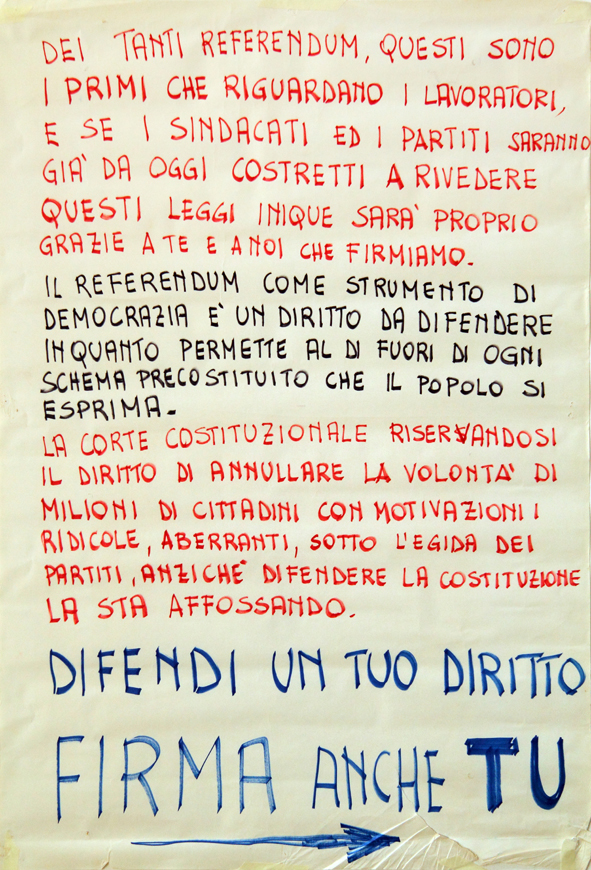 DEI TANTI REFERENDUM, QUESTI SONO
I PRIMI CHE RIGUARDANO I LAVORATORI,
E SE I SINDACATI ED I PARTITI SARANNO
GIA' DA OGGI COSTRETTI A RIVEDERE
QUESTI LEGGI INIQUE SARA' PROPRIO
GRAZIE A TE E A NOI CHE FIRMIAMO.
IL REFERENDUM COME STRUMENTO DI
DEMOCRAZIA E' UN DIRITTO DA DIFENDERE
IN QUANTO PERMETTE AL DI FUORI DI OGNI
SCHEMA PRECOSTITUITO CHE IL POPOLO SI
ESPRIMA-
LA CORTE COSTITUZIONALE RISERVANDOSI
IL DIRITTO DI ANNULLARE LA VOLONTA' DI
MILIONI DI CITTADINI CON MOTIVAZIONI I
RIDICOLE, ABERRANTI, SOTTO L'EGIDA DEI
PARTITI, ANZICHE' DIFENDERE LA COSTITUZIONE
LA STA AFFOSSANDO.
DIFENDI UN TUO DIRITTO
FIRMA ANCHE TU